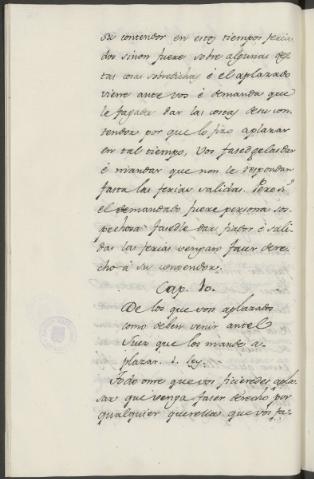 su contendor en estos tiempos feria
dos sinon fuere sobre algunas des
tas cosas sobredichas é el aplazado
viere ante vos é demanda que
le fagades dar las costas de su con
tendor por que lo fizo aplazar
en tal tiempo, vos fasedgelas dar
é mandar que non le respondan
fasta las ferias salidas. Pero si
el demandado fuere persona sos
pechosa fasedle dar fiador é sali
das las ferias vengan faser dere
cho á su contendor.
Cap. 10.
De los que vos aplazados
como deben venir antel
Juez que los mandó a
plazar. 1. ley.
Todo ome que vos ficieredes apla
sar que venga faser derecho por
qualquier querella que vos fa-